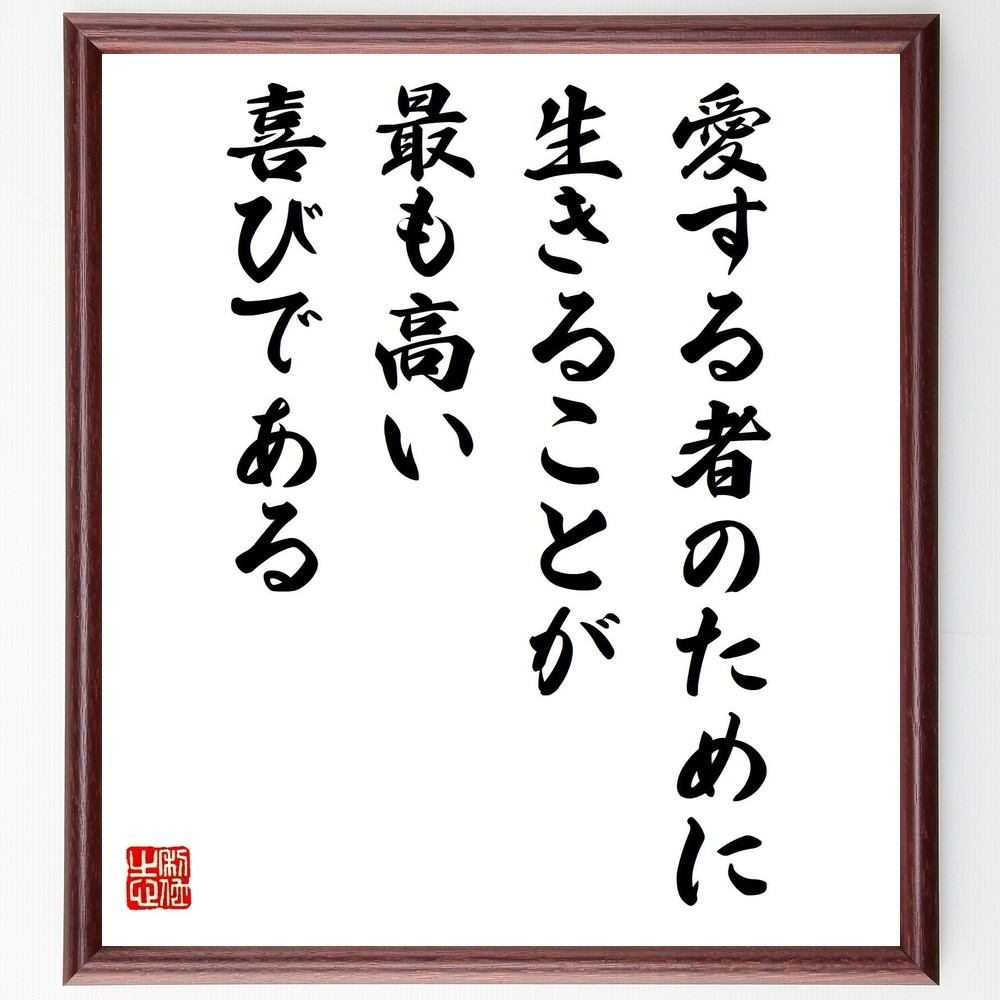 愛する者のために
生きることが
最も高い
喜びである